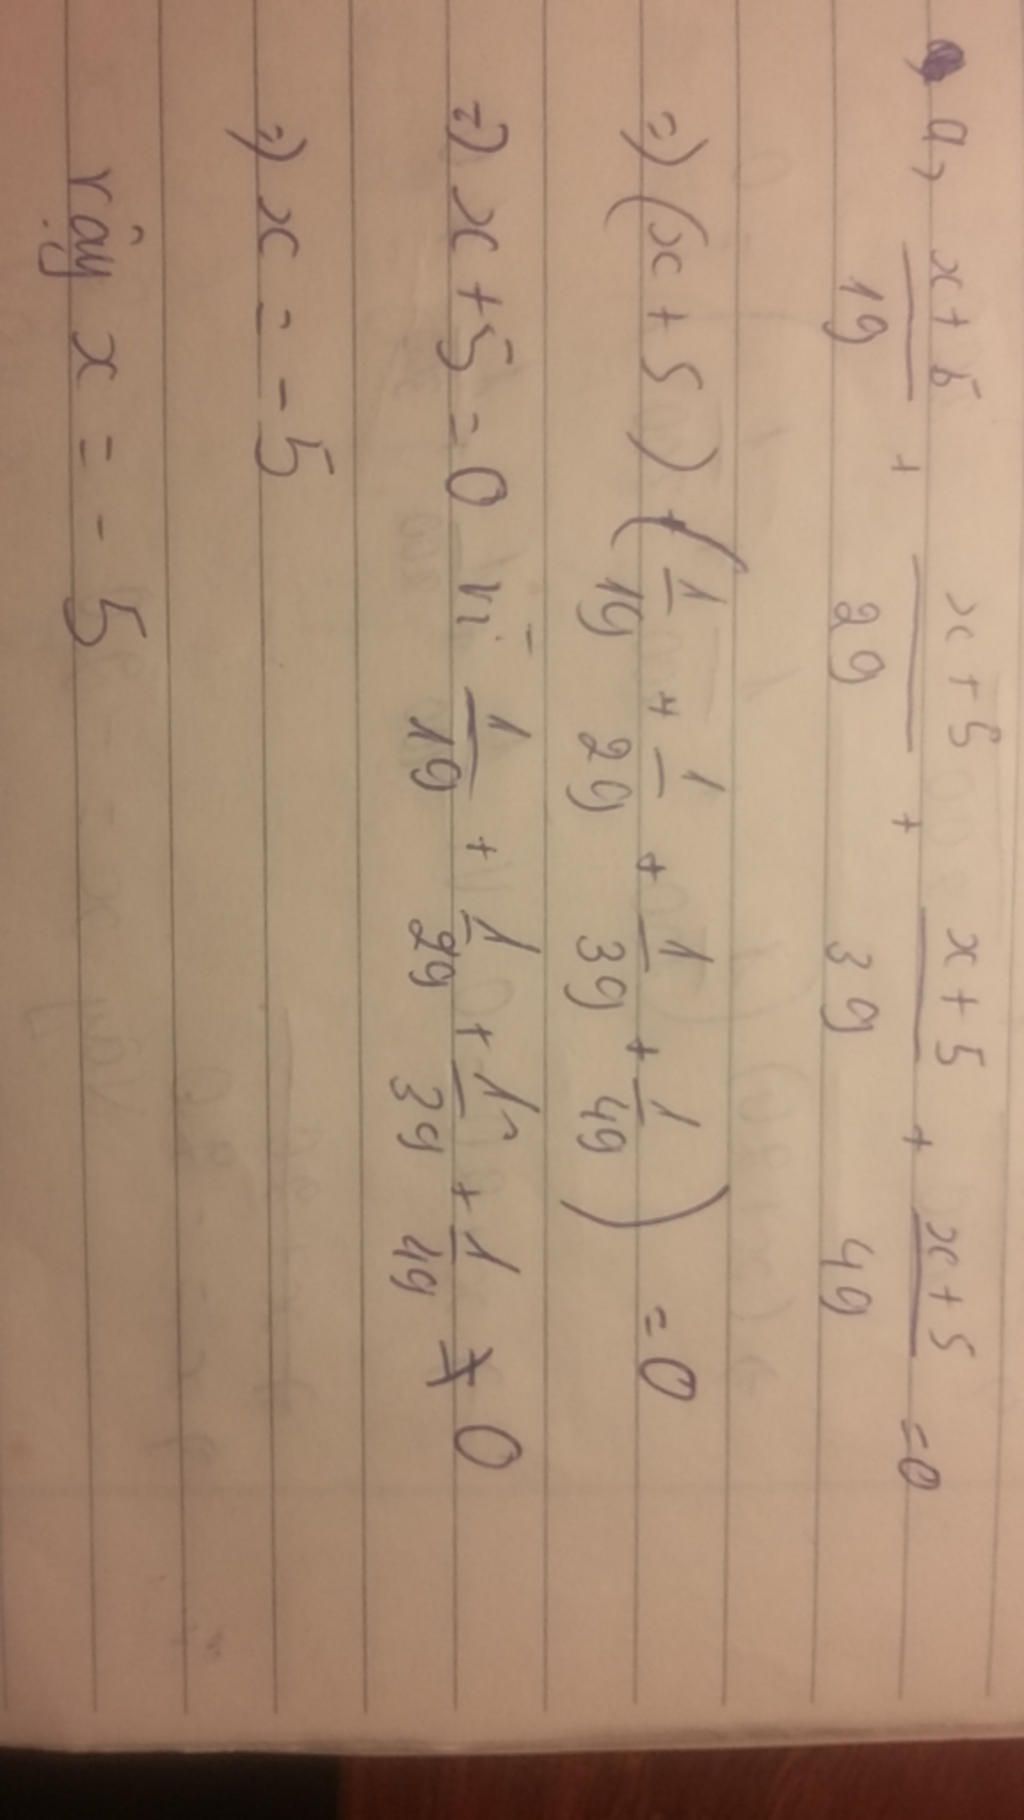 a, x+5/19 + x+5/29 + x+5/39 + x+5/49 =0
=> (x+5) (1/19 + 1/29 + 1/39 + 1/49) =0
=> x+5=0 vì 1/19 + 1/29 + 1/39 + 1/49 ≠ 0
=> x = -5
Vậy x = -5